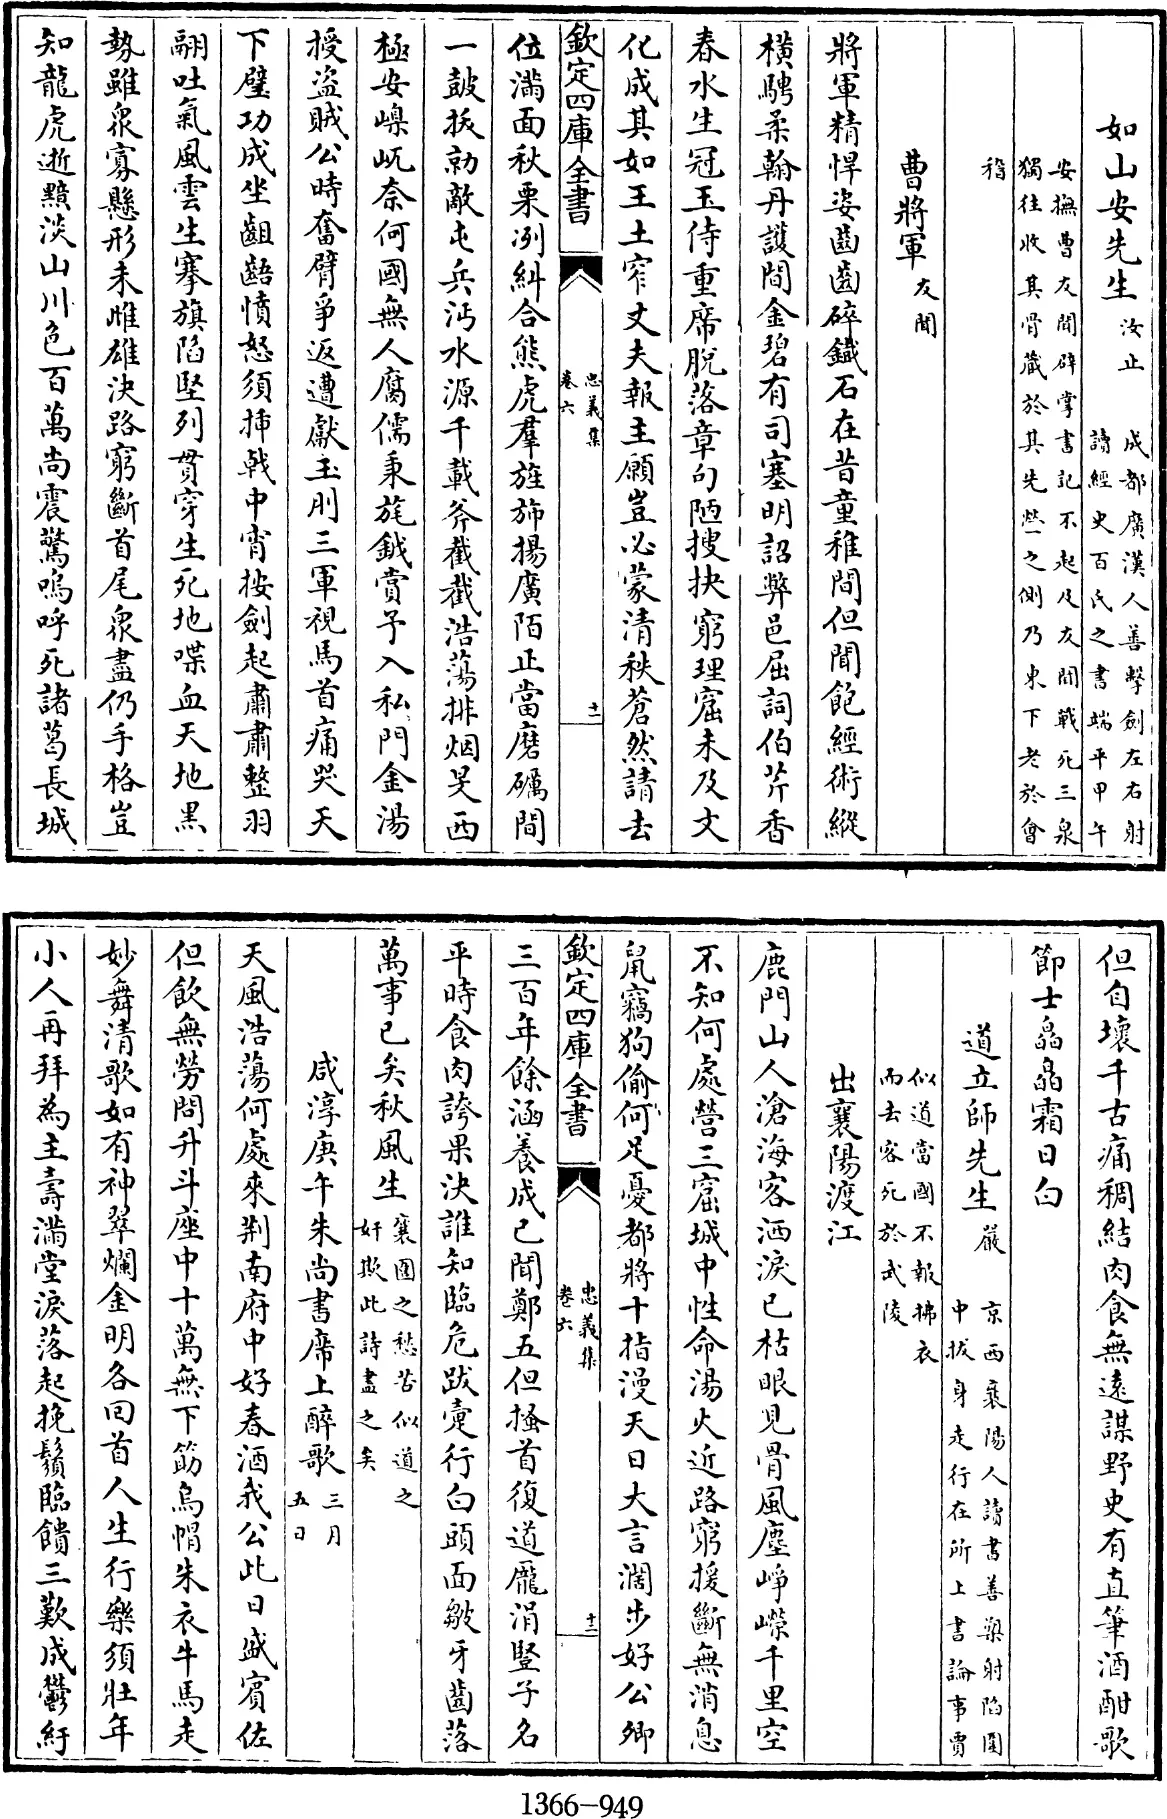 如山安先生 汝止 成都廣漢人善擊劍左右射
讀經史百氏之書端平甲午
安撫曹友聞辟掌書記不起及友聞戰死三泉
獨往收其骨藏於其先塋之側乃東下老於會
稽
曹將軍 友聞
將軍精悍姿齒齒碎鐵石在昔童稚間但聞飽經術縱
橫騁柔翰丹護間金碧有司塞明詔弊邑屈詞伯芹香
春水生冠玉侍重席脫落章句陋搜抉窮理窟未及文
化成其如王土窄丈夫報主願豈必蒙清秩蒼然請去
欽定四庫全書 忠義集 卷六 十一
位滿面秋栗冽糾合熊虎羣旌斾揚廣陌正當磨礪間
一鼓扳勍敵屯兵沔水源千載斧截截浩蕩排烟旻西
極安嵲屼奈何國無人腐儒秉旄鉞賞予入私門金湯
授盜賊公時奮臂爭返遭獻玉刖三軍視馬首痛哭天
下璧功成坐齟齬憤怒須揷戟中宵按劍起肅肅整羽
翮吐氣風雲生搴旗陷堅列貫穿生死地喋血天地黑
勢雖衆寡懸形未雌雄決路窮斷首尾衆盡仍手格豈
知龍虎逝黯淡山川色百萬尚震驚嗚呼死諸葛長城
但自壞千古痛稠結肉食無遠謀野史有直筆酒酣歌
節士皛皛霜日白
道立師先生 嚴 京西襄陽人讀書善槊射陷圍
中拔身走行在所上書論事賈
似道當國不報拂衣
而去客死於武陵
出襄陽渡江
鹿門山人滄海客洒淚已枯眼見骨風塵崢嶸千里空
不知何處營三窟城中性命湯火近路窮援斷無消息
鼠竊狗偷何足憂都將十指漫天日大言濶步好公卿
欽定四庫全書 忠義集 卷六 十二
三百年餘涵養成已聞鄭五但搔首復道龐涓豎子名
平時食肉誇果決誰知臨危跋疐行白頭面皺牙齒落
萬事已矣秋風生 襄圍之愁苦似道之
奸欺此詩盡之矣
咸淳庚午朱尚書席上醉歌 三月
五日
天風浩蕩何處來荆南府中好春酒我公此日盛賓佐
但飲無勞問升斗座中十萬無下筯烏帽朱衣牛馬走
妙舞清歌如有神翠爛金明各回首人生行樂須壯年
小人再拜為主壽滿堂淚落起挽鬚臨饋三歎成鬱紆
1366-949